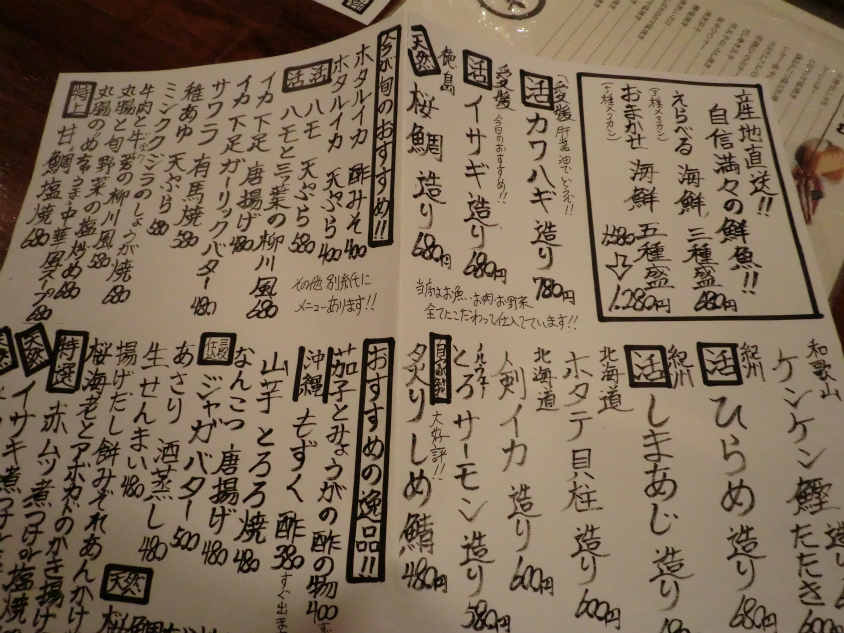 産地直送!!
自信満々の鮮魚!!
えらべる 海鮮 三種盛 680円
おまかせ 海鮮 五種盛 1,280円
愛媛 肝醤油でどうぞ!!
活 カワハギ造り 780円
愛媛 今日のおすすめ!!
活 イサギ造り 680円
徳島
天然 桜鯛 造り 680円
当店はお魚、お肉、お野菜
全てにこだわって仕入てています!!
今が旬のおすすめ!!
ホタルイカ 酢みそ 400
ホタルイカ 天ぷら 400
活 ハモ 天ぷら 580
活 ハモと三つ葉の柳川風 680
イカ下足 唐揚げ 480
イカ下足ガーリックバター 480
サワラ 有馬焼 580
稚あゆ 天ぷら 580
ミンククジラのしょうが焼 680
牛肉と牛蒡の柳川風 580
丸腸と旬野菜の塩炒め 680
丸腸のめちゃうま中華風スープ 680
特上 甘鯛塩焼 680
その他 別紙に
メニューあります!!
和歌山
ケンケン鰹 たたき 造り
紀州
活 ひらめ 造り 680円
紀州
活 しまあじ 造り
北海道
ホタテ貝柱 造り 600円
北海道
剣イカ 造り 600円
ノルウェー
とろサーモン造り 580円
自家製 大好評!!
炙りしめ鯖 480円
おすすめの逸品!!
茄子とみょうがの酢の物 400
沖縄 もずく 酢 380
山芋 とろろ焼 480
なんこつ 唐揚げ 480
ジャガバター 500
あさり 酒蒸し 480
生せんまい 480
揚げだし餅みぞれあんかけ
桜海老とアボカドのかき揚げ
特選 赤ムツ煮つけor塩焼
天然 イサキ煮つけor塩焼
天然
天然 桜鯛